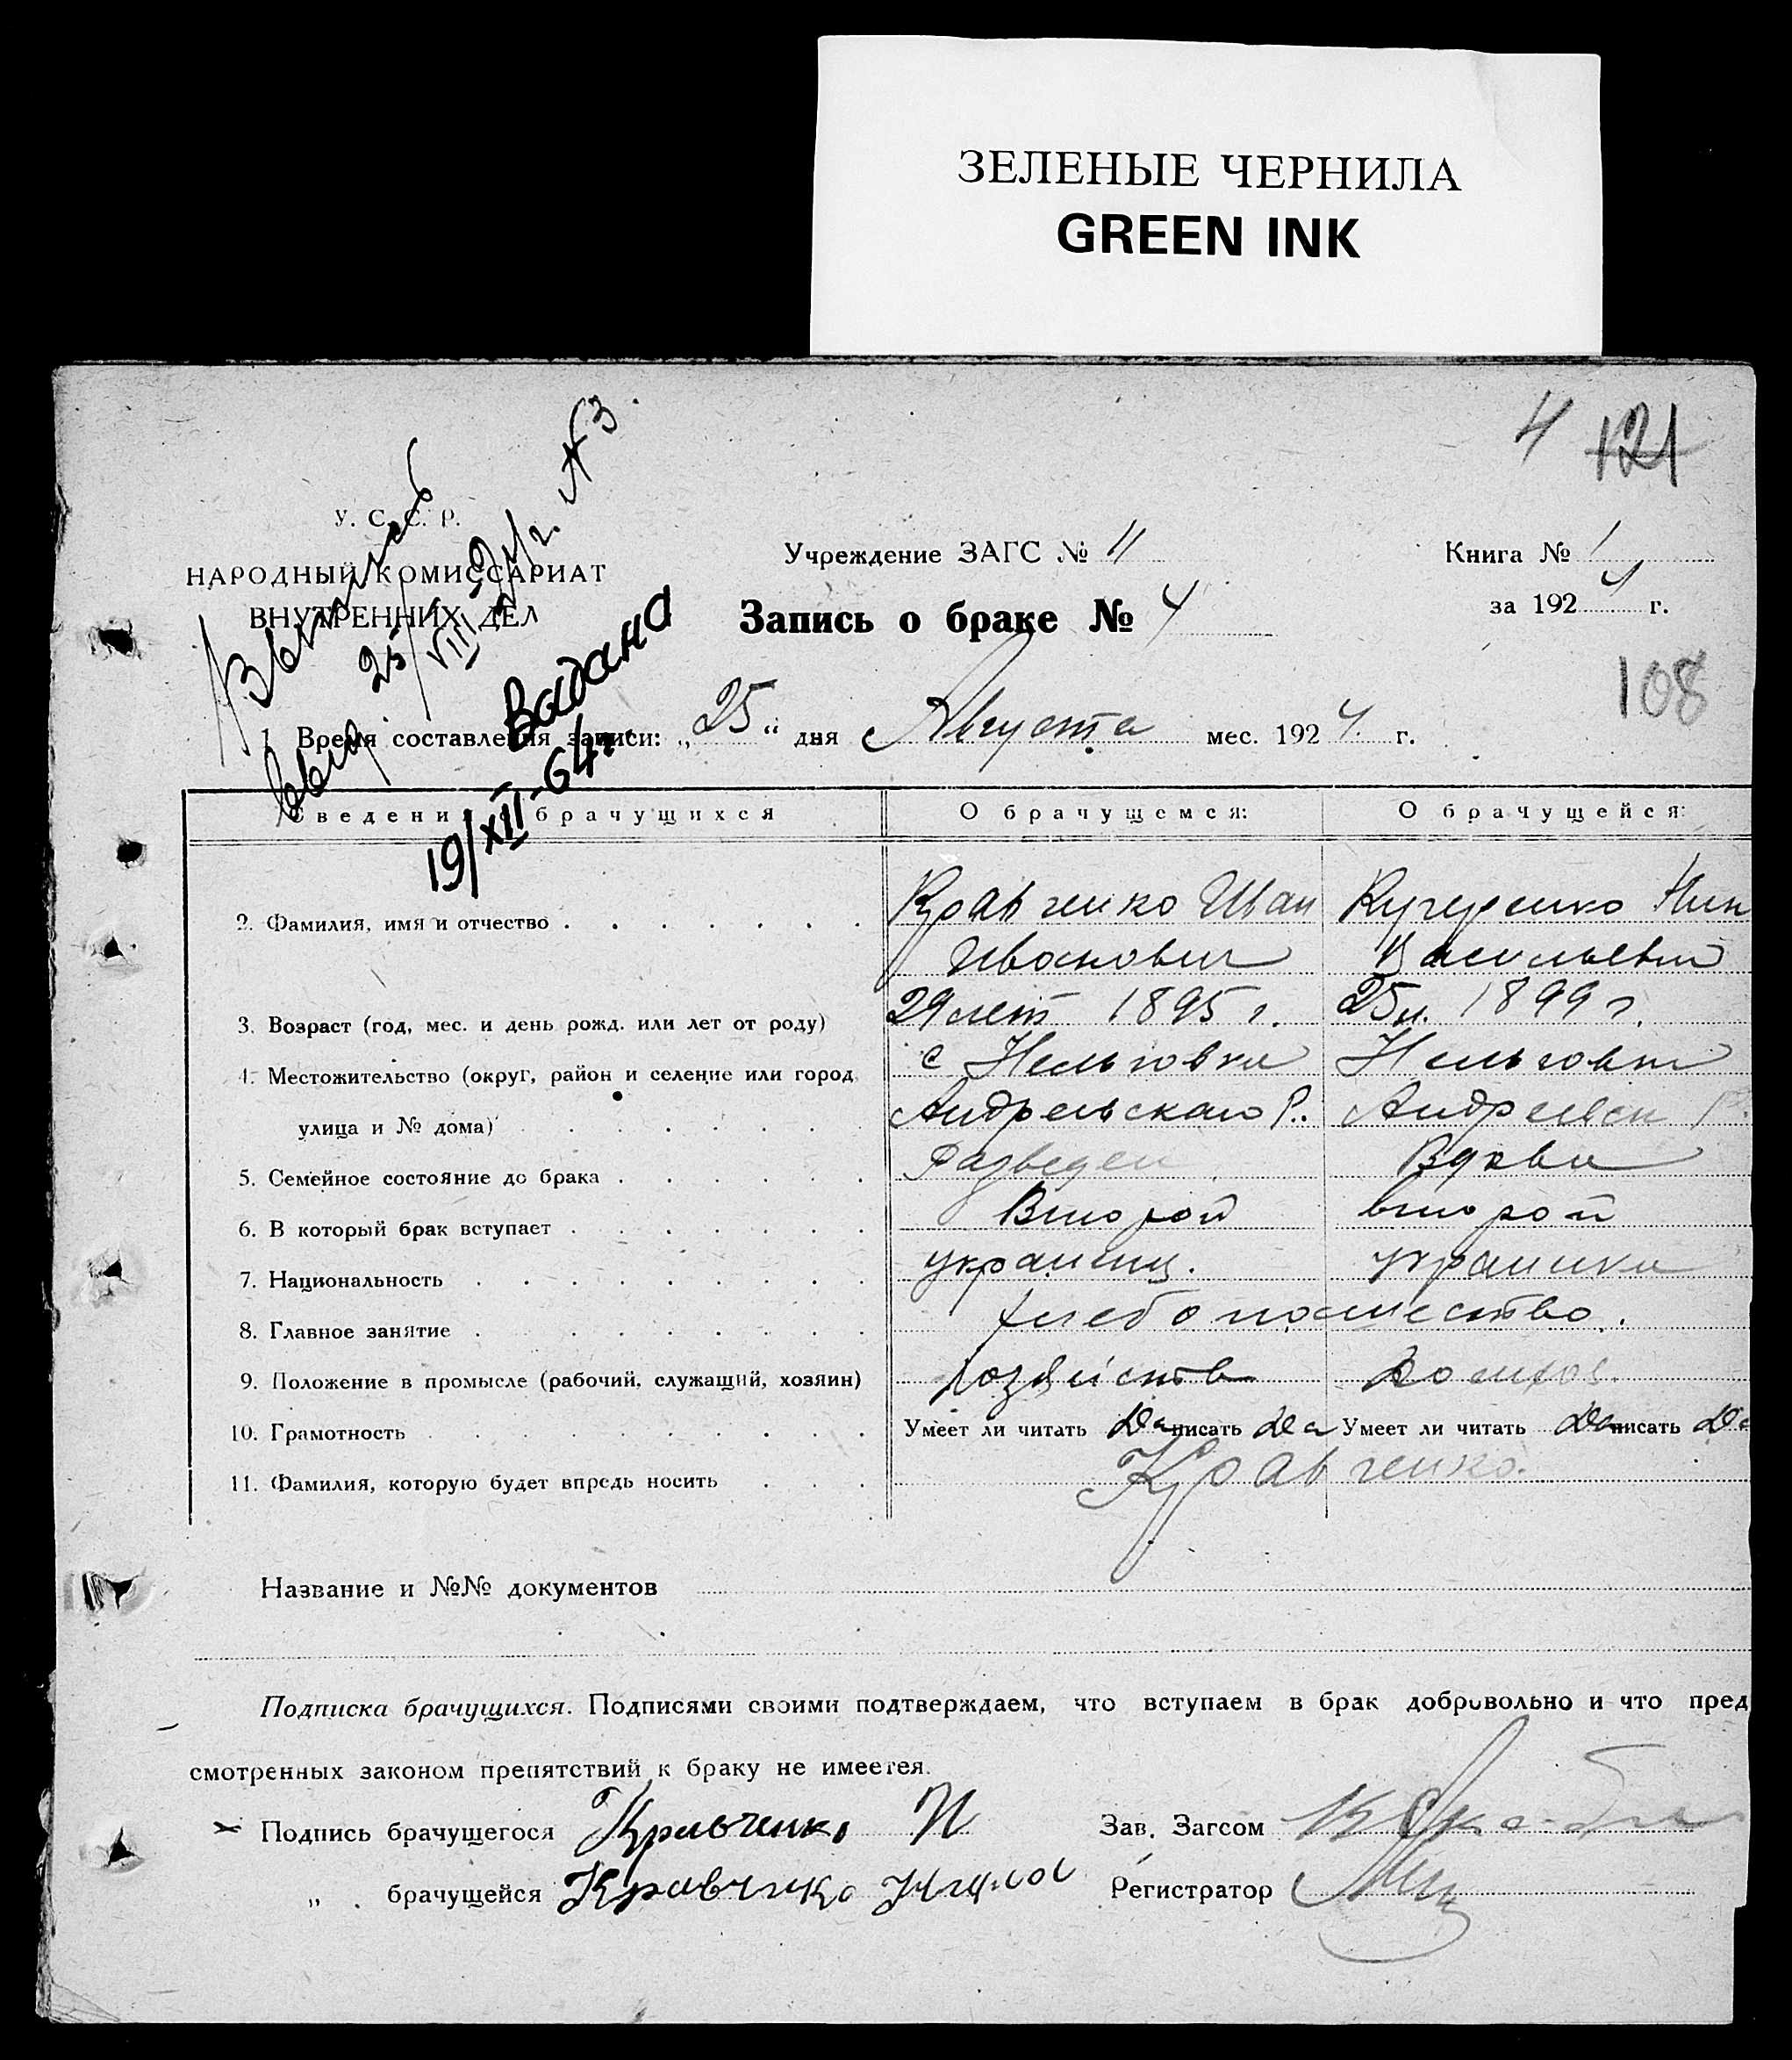 ЗЕЛЕНЫЕ ЧЕРНИЛА
GREEN INK
4 121
У. С. С. Р.
НАРОДНЫЙ КОМИССАРИАТ
ВНУТРЕННИХ ДЕЛ
Учреждение ЗАГС № 11
Книга № 1
за 1924 г.
Запись о браке № 4
108
25/VIII 24 г. №3.
Выдана
19/XII-64 г.
Время составления записи: „25“ дня Августа мес. 1924. г.
Сведения о брачущихся О брачущемся: О брачущейся:
2. Фамилия, имя и отчество Кравченко Иван
Иванович Васильевн
3. Возраст (год, мес. и день рожд. или лет от роду) 29 лет 1895 г. 25 л. 1899 г.
4. Местожительство (округ, район и селение или город, с Нельговка Нельговк
улица и № дома) Андреевского Р. Андреевск Р.
5. Семейное состояние до брака Разведен Вдова
6. В который брак вступает Второй второй
7. Национальность украинец. украинка
8. Главное занятие хлебопашество.
9. Положение в промысле (рабочий, служащий, хозяин) хозяйств домхоз.
10. Грамотность Умеет ли читать Да писать Да Умеет ли читать Да писать Да
11. Фамилия, которую будет впредь носить Кравченко.
Название и №№ документов
Подписка брачущихся. Подписями своими подтверждаем, что вступаем в брак добровольно и что пред
смотренных законом препятствий к браку не имеется.
Подпись брачущегося Кравченко И Зав. Загсом
„ брачущейся Кравченко Нина Регистратор